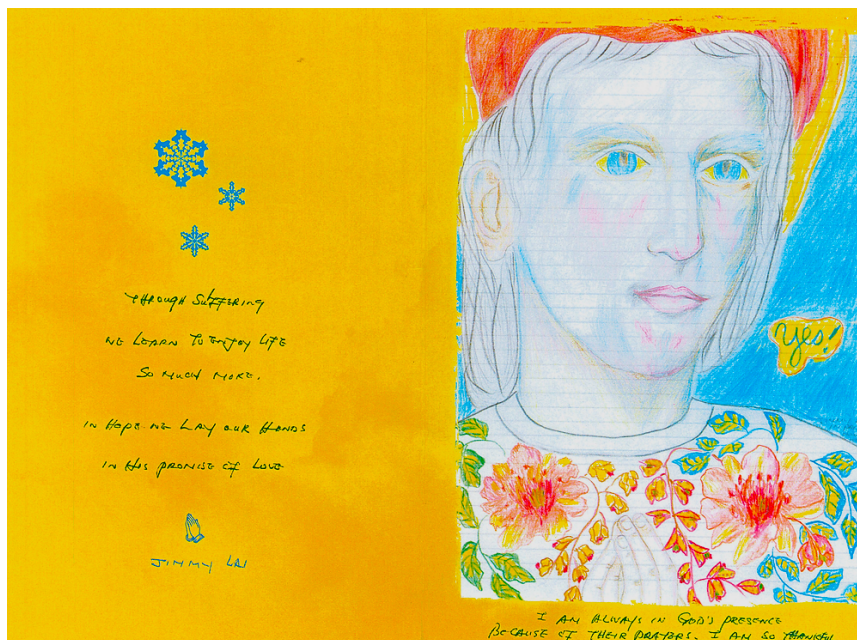 THROUGH SUFFERING
WE LEARN TO ENJOY LIFE
SO MUCH MORE.
IN HOPE WE LAY OUR HANDS
IN HIS PROMISE OF LOVE
JIMMY LAI
Yes!
I AM ALWAYS IN GOD'S PRESENCE
BECAUSE OF THEIR PRAYERS. I AM SO THANKFUL